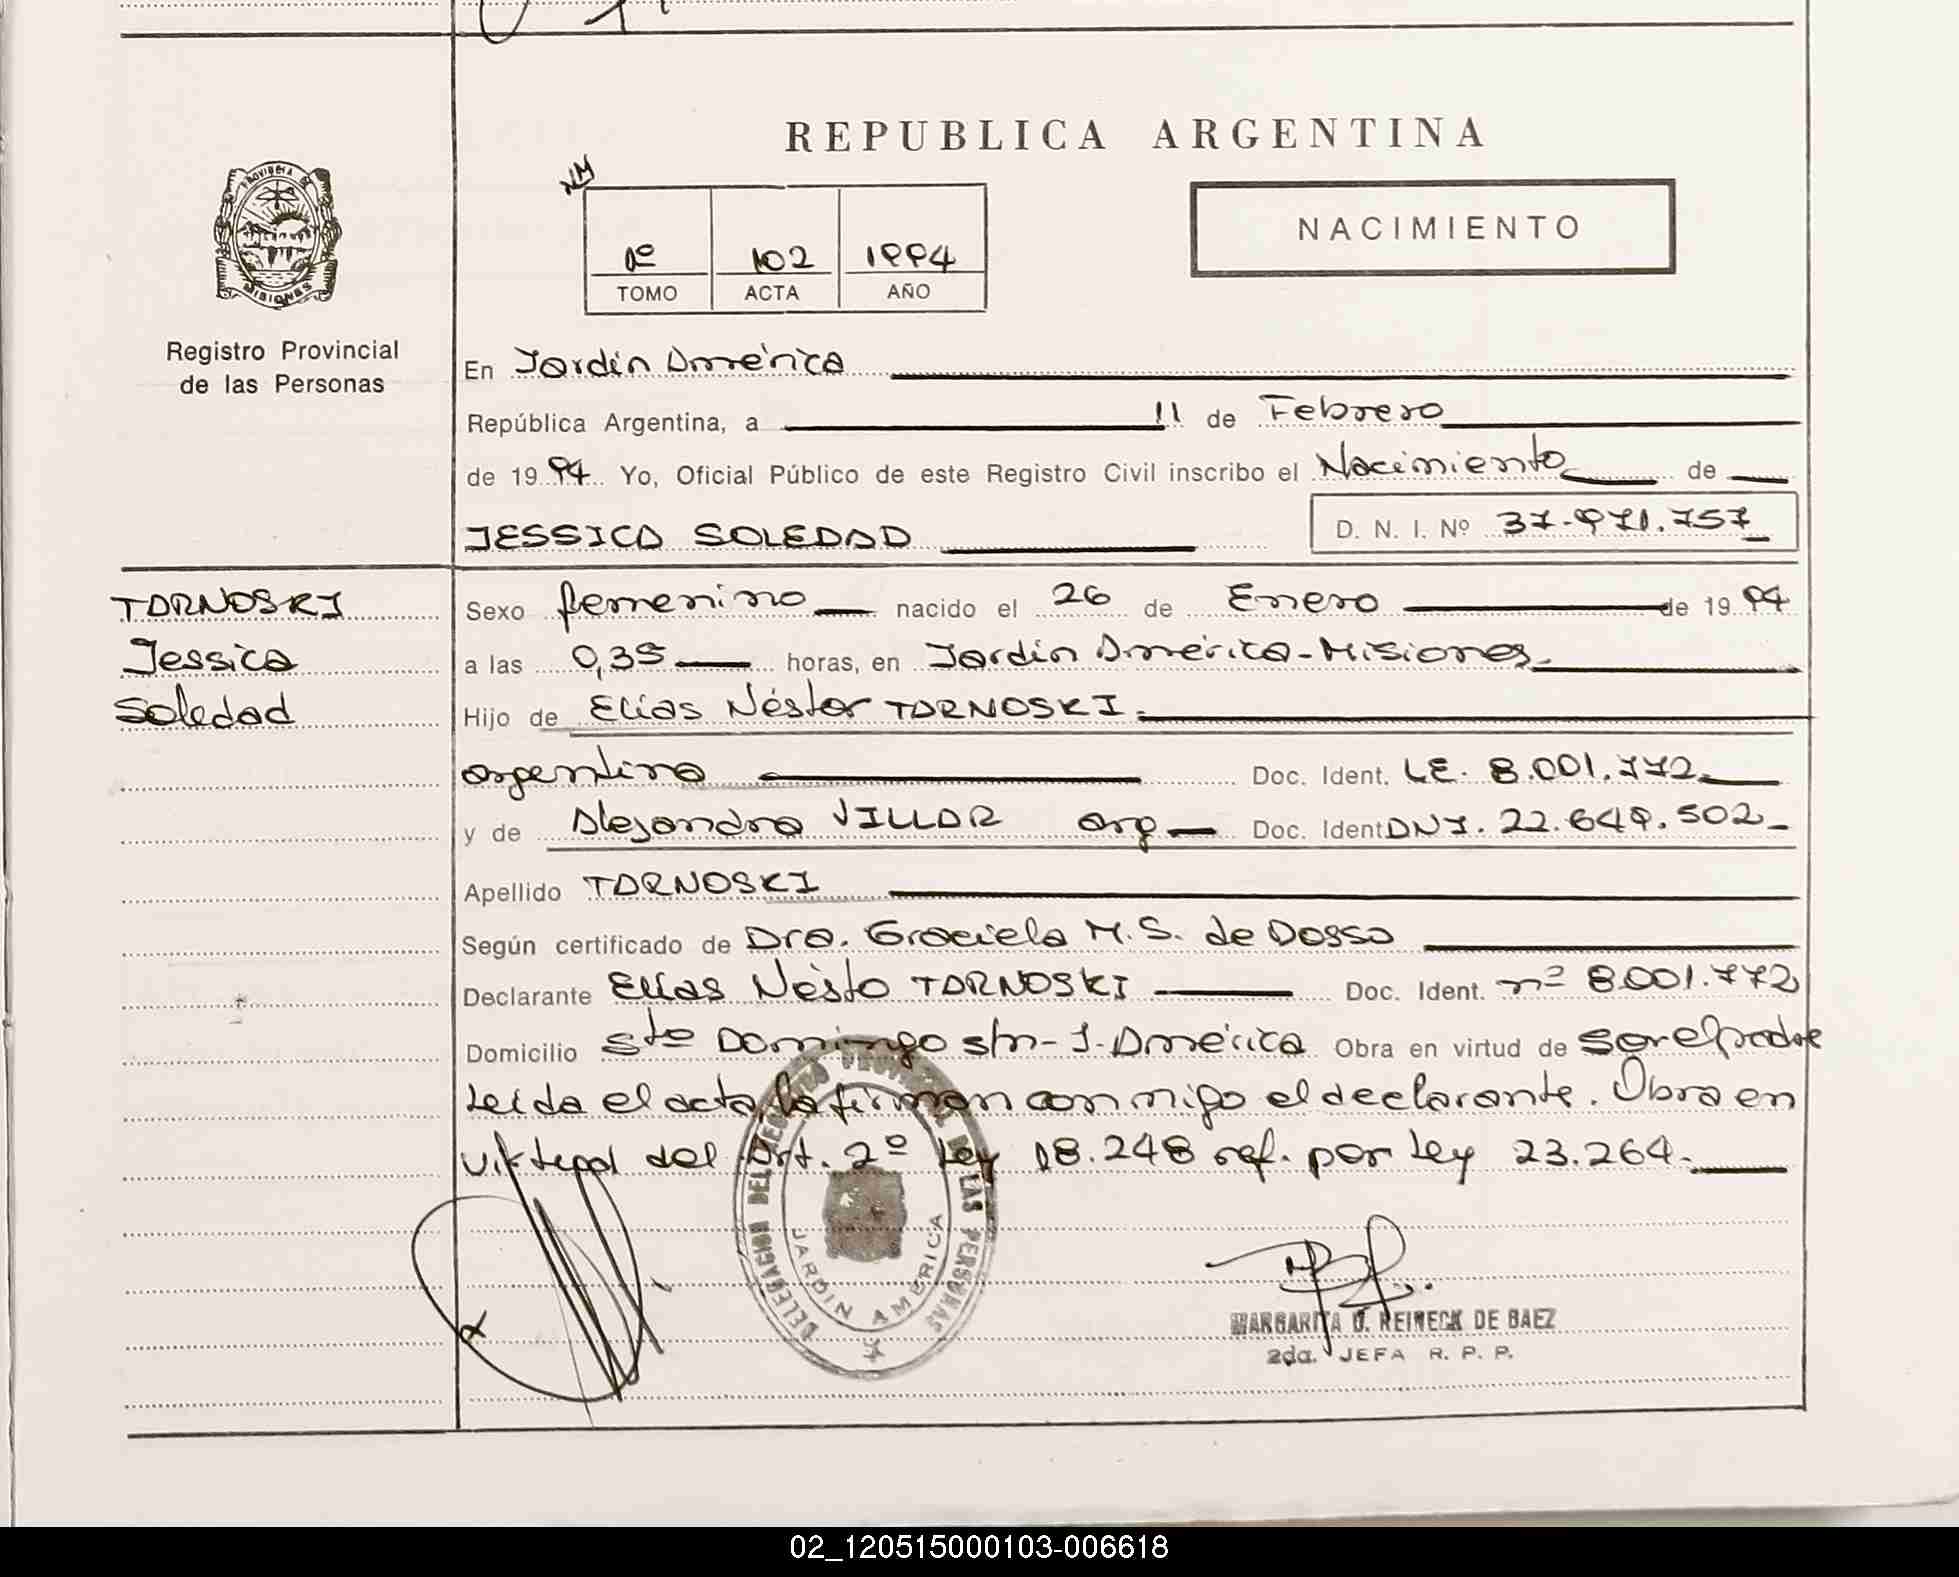 REPUBLICA ARGENTINA
PROVINCIA DE
MISIONES
Registro Provincial
de las Personas
NM
1º 102 1994
TOMO ACTA AÑO
NACIMIENTO
En Jardín América
República Argentina, a 11 de Febrero
de 1994 Yo, Oficial Público de este Registro Civil inscribo el Nacimiento de
JESSICA SOLEDAD D. N. I. Nº 37.971.757
TARNOSKI
Jessica
Soledad
Sexo femenino nacido el 26 de Enero de 1994
a las 0,35 horas, en Jardín América-Misiones.
Hijo de Elías Néstor TARNOSKI.
argentino Doc. Ident. LE. 8.001.772
y de Alejandra VILLAR arg Doc. Ident DNI. 22.649.502
Apellido TARNOSKI
Según certificado de Dra. Graciela M.S. de Dosso
Declarante Elías Nésto TARNOSKI Doc. Ident. nº 8.001.772
Domicilio Sto Domingo s/n- J. América Obra en virtud de ser el padre
Leída el acta, la firman conmigo el declarante. Obra en
del Art. 2º Ley 18.248 ref. por Ley 23.264.
DELEGACION DEL REGISTRO PROVINCIAL DE LAS PERSONAS
JARDIN AMERICA
MARGARITA REINECK DE BAEZ
2da. JEFA R. P. P.
02_120515000103-006618